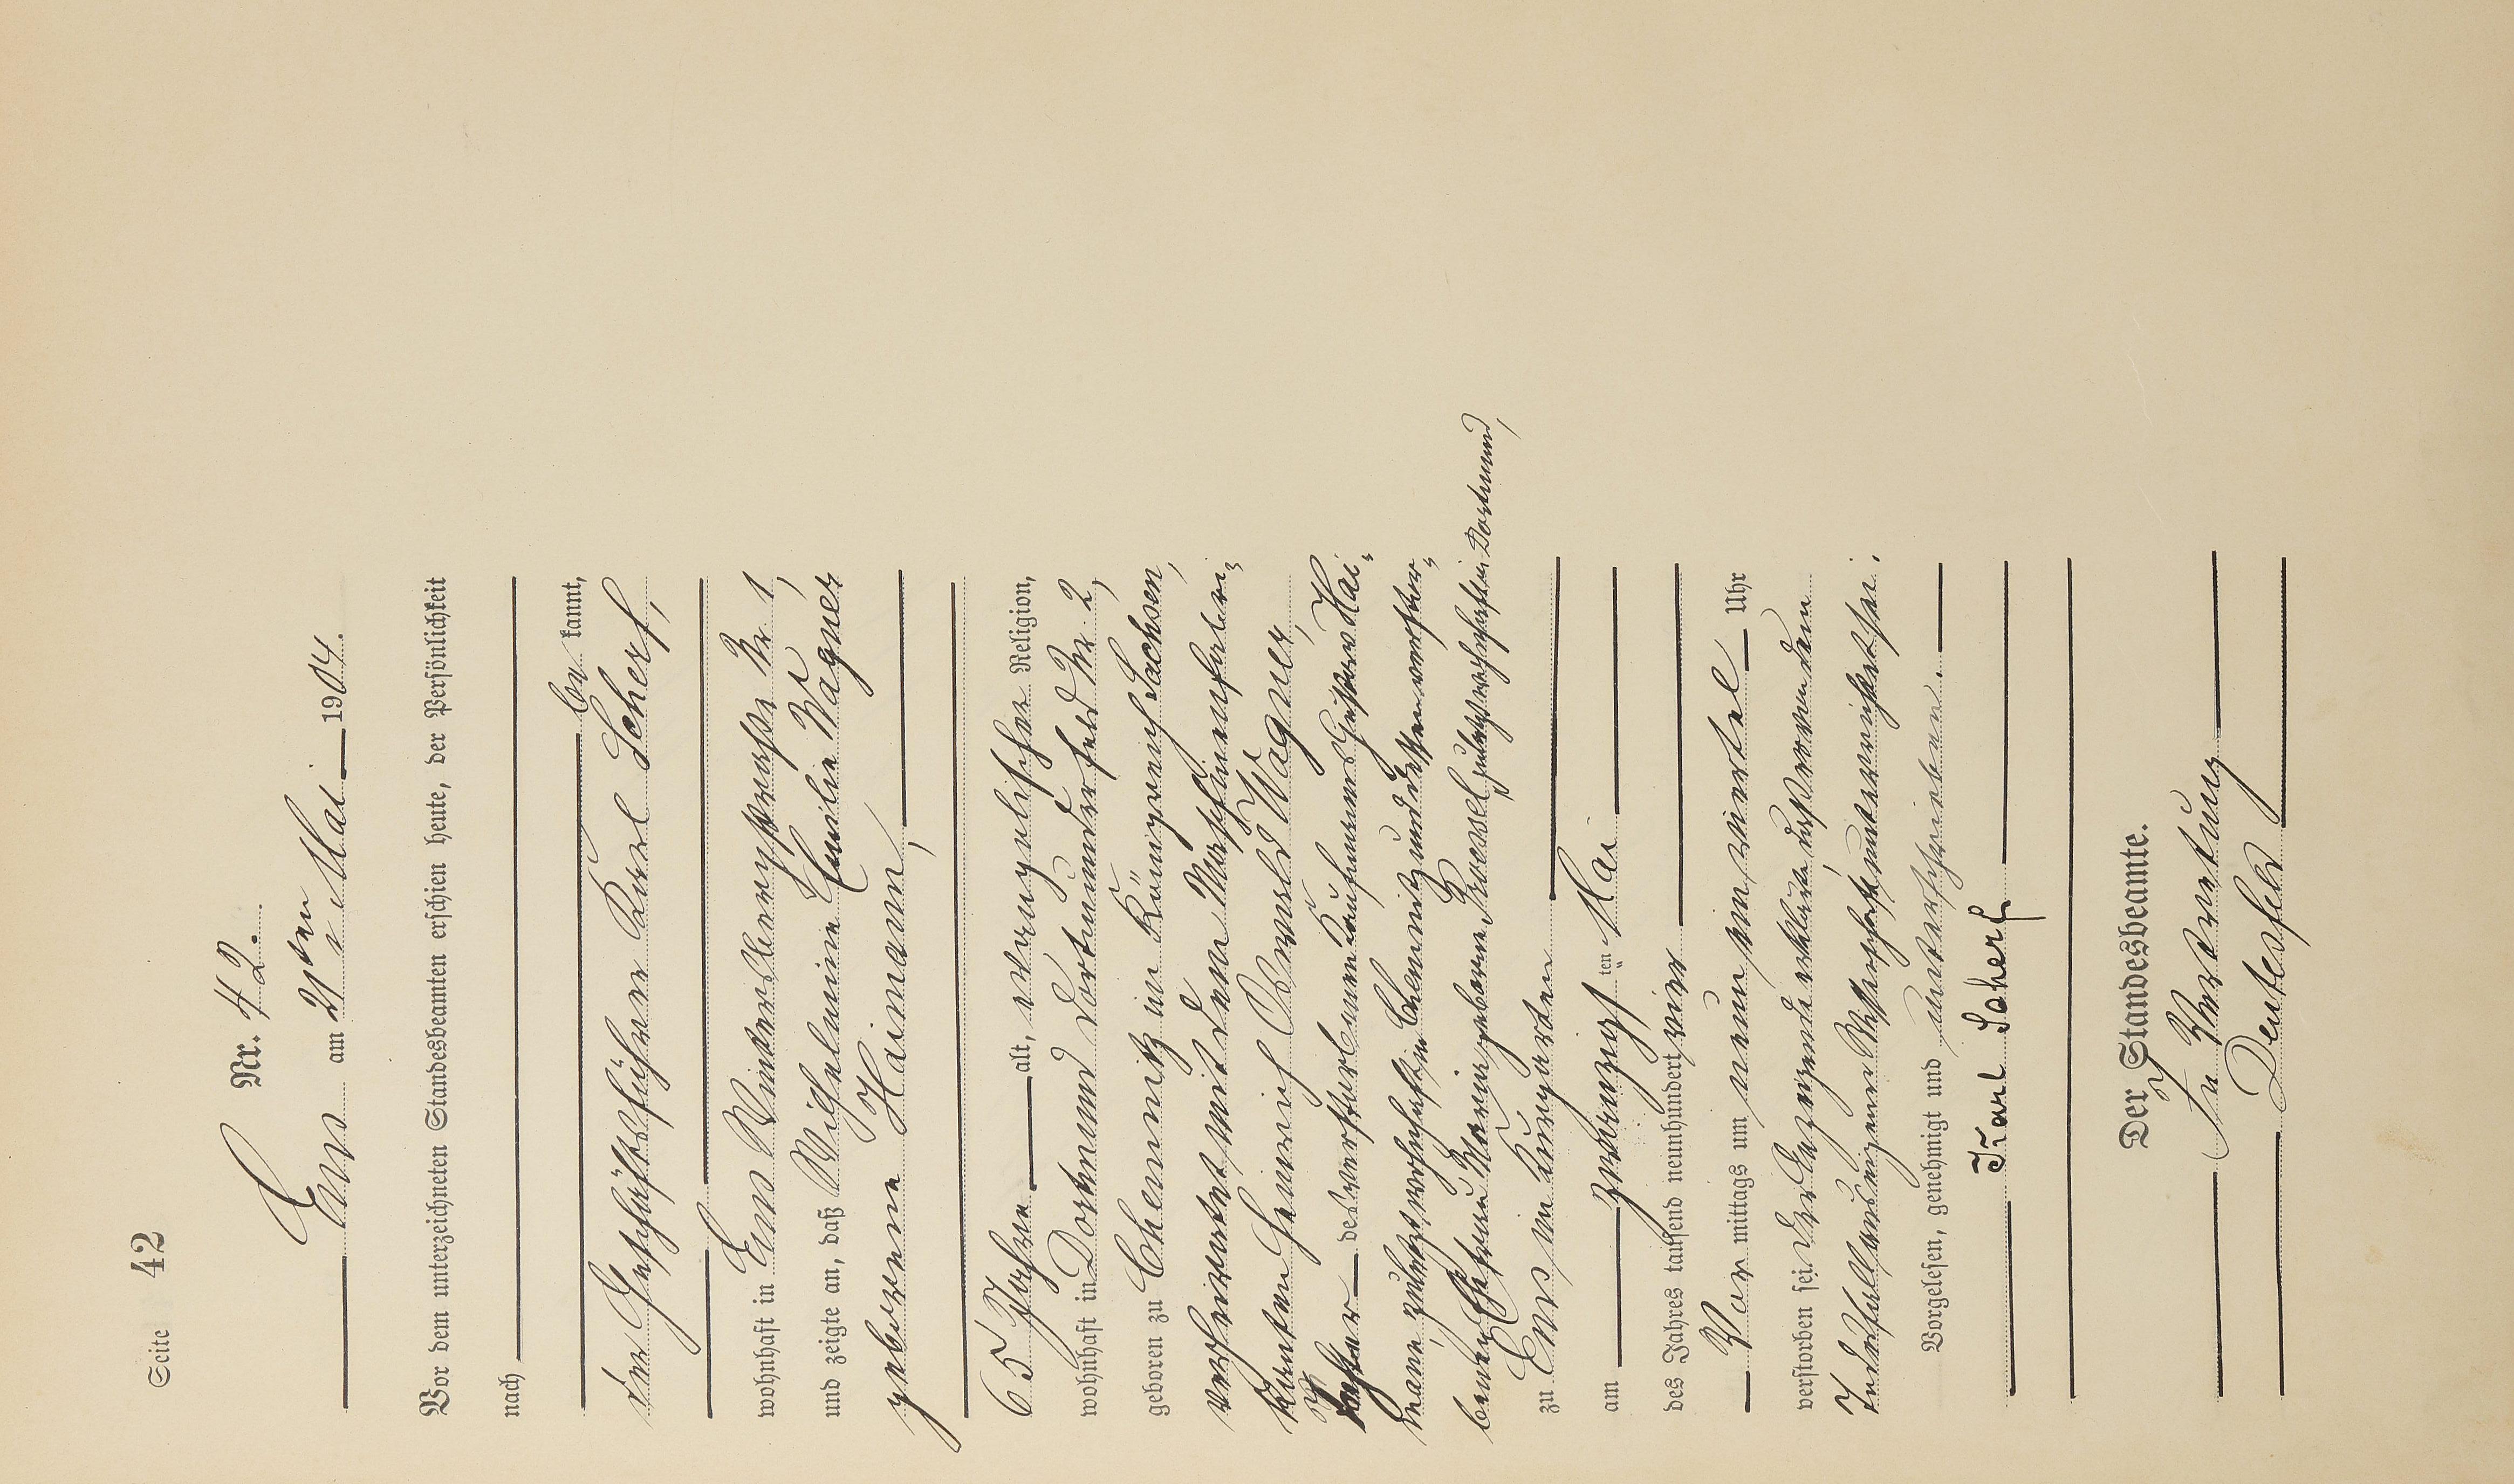 Seite 42
Nr. 42.
Ems am 21ten Mai 1904.
Vor dem unterzeichneten Standesbeamten erschien heute, der Persönlichkeit
nach
be kannt,
der Geschäftsführer Karl Scherf,
wohnhaft in Ems Wintersbergstraße Nr. 1,
und zeigte an, daß Wilhelmine Emilie Wagner
geborene Haimann,
65 Jahre alt, evangelischer Religion,
wohnhaft in Dortmund Dortmunderfeld Nr. 2,
geboren zu Chemnitz im Königreich Sachsen,
verheiratet mit dem Maschinenfabri-
kanten Heinrich Oswald Wagner,
Tochter des verstorbenen Kaufmanns Gustav Hai-
mann, zuletzt wohnhaft in Chemnitz und dessen verstor-
benen Ehefrau Maria geborene zuletzt wohnhaft in Dortmund,
zu Ems im Kurgarten
am zwanzigsten Mai
des Jahres tausend neunhundert vier
Vor mittags um neun ein viertel Uhr
verstorben sei. Der Anzeigende erklärte, daß er von dem
Todesfall aus eigener Wissenschaft unterrichtet sei.
Vorgelesen, genehmigt und unterschrieben.
Karl Scherf
Der Standesbeamte.
In Vertretung